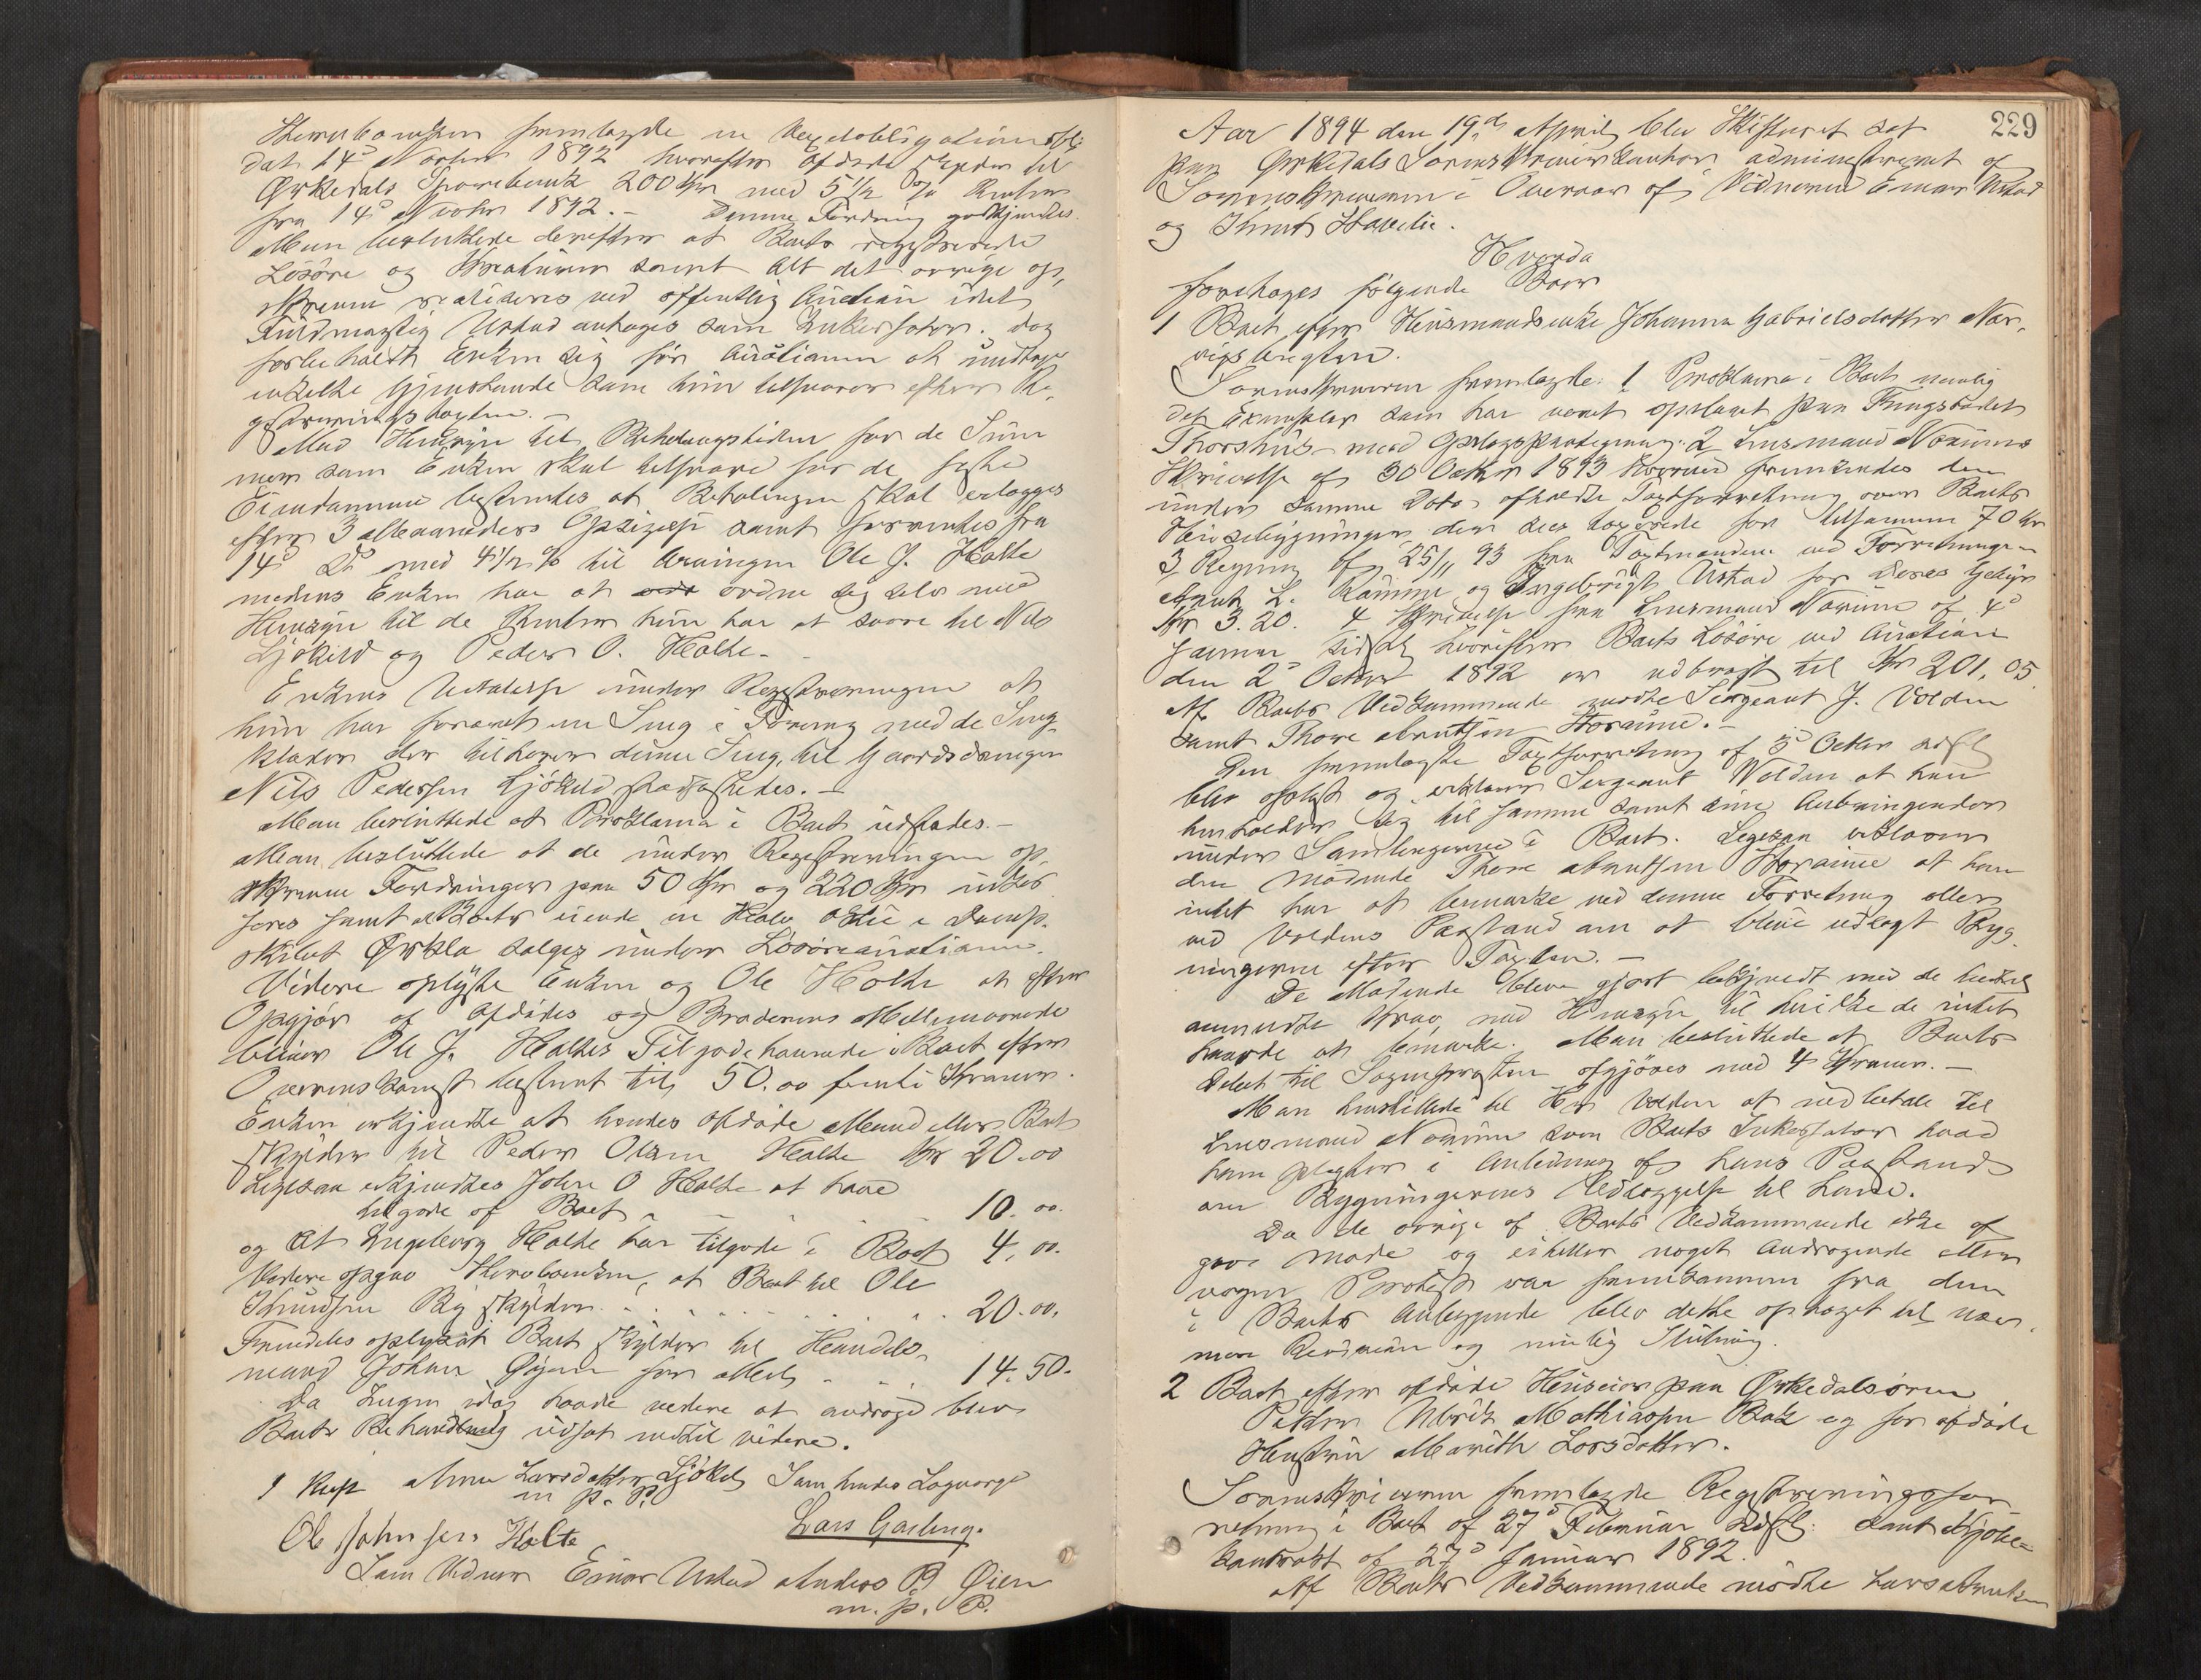 fremlagde en Vexelobligation
dat. 14de Novbr 1892 hvorefter Afdøde skylder til
Ørkedals Sparebank 200 Kr med 5 1/2 % Renter
fra 14d Novbr 1892. – Denne Fordring godkjendtes.
Man besluttede derefter at Boets registrerede
Løsøre og Kreaturer samt Alt det øvrige op-
skrevne realiseres ved offentlig Auction idet
Fuldmægtig Ustad antages som Inkassator. Dog
forbeholdt Enken sig før Auctionen at undtage
enkelte Gjenstande som hun tilsvarer efter Re-
gistreringstaxten. –
Med Hensyn til Betalingstiden for de Sum
mer som Enken skal tilsvare for de faste
Eiendomme bestemtes at Betalingen skal erlægges
efter 3 Maaneders Opsigelse samt forrentes fra
14d Ds med 4 1/2 % til Arvingen Ole J. Holte
medens Enken har at ordne sig selv med
Hensyn til de Renter hun har at svare til Nils
Ljøkild og Peder O. Holte. –
Enkens Udtalelse under Registreringen at
hun har foræret en Seng i Forening med de Seng-
klæder der tilhører denne Seng, til Gaardsdrengen
Nils Pedersen Ljøkild stadfæstedes. –
Man besluttede at Proklama i Boet udstedes. –
Man besluttede at de under Registreringen op-
skrevne Fordringer paa 50 Kr og 220 Kr indkas
seres samt at Boets eiende en Halv Actie i Damp-
skibet Ørkla sælges under Løsøreauctionen.
Videre oplyste Enken og Ole Holte at efter
Opgjør af Afdødes og Broderens Mellemværende
bliver Ole J. Holtes Tilgodehavende i Boet efter
Overenskomst bestemt til 50.00 femti Kroner.
Enken erkjendte at hendes afdøde Mand eller Boet
skylder til Peder Olsen Holte Kr 20.00
Ligesaa erkjendtes John O Holte at have
tilgode af Boet . . . . . 10.00.
og At Ingeborg Holte har tilgode i Boet 4.00.
Videre opgav at Boet til Ole
Knudsen By skylder . . . . . 20.00.
Fremdeles oplystes at Boet skylder til Handels-
mand Johan Øyen for Mel . . . 14.50.
Da Ingen idag havde videre at andrage blev
Boets Behandling udsat indtil videre.
Anne Larsdatter Ljøkel Som hendes Lagværge
m. p. P.
Ole Johnsen Holte Lars Garberg.
Som Vidner Einar Ustad Anders B Øien
m. p. P.
229
Aar 1894 den 19de April blev Skifteret sat
paa Ørkedals Sorenskriverkontor administreret af
Sorenskriveren i Overvær af Vidnerne Einar Ustad
og Knut Havelie.
Hvorda
foretoges følgende Boer
1 Boet efter Husmandsenke Johanna Gabrielsdatter Nor-
Sorenskriveren fremlagde: 1 Proklama i Boet nemlig
det Exemplar som har været opslaaet paa Thingstedet
Thorshus med Opslagspaategning. 2 Lensmand Norums
Skrivelse af 30 Octbr 1893 hvorved fremsendes den
under samme Dato afholdte Taxtforretning over Boets
Husebygninger der sees taxerede for tilsammen 70 Kr
3 Regning af 25/11 93 fra Taxtmændene ved Forretningen
Arnt L. Ramme og Ingebrigt Ustad for deres Gebyr
Kr 3.20. 4 Skrivelse fra Lensmand Norum af 4d
Januar sidstl. hvorefter Boets Løsøre ved Auction
den 2d Octbr 1892 er udbragt til Kr 201,05.
Af Boets Vedkommende mødte Sergeant J. Volden
samt Thore Arntsen Storaune. –
Den fremlagte Taxtforretning af 3d Octbr sidstl
blev oplæst og erklærer Sergeant Volden at han
henholder sig til samme samt sine Anbringender
under Samlingerne i Boet. Ligesaa erklærer
den mødende Thore Arntsen Storaune at han
intet har at bemærke ved denne Forretning eller
ved Voldens Paastand om at blive udlagt Byg-
ningerne efter Taxten. –
De Mødende bleve gjort bekjendt med de hidtil
anmeldte Krav med Hensyn til hvilke de intet
havde at bemærke. Man besluttede at Boets
Debet til Sognepræsten afgjøres med 4 Kroner. –
Man henstillede til Hr Volden at indbetale til
Lensmand Norum som Boets Inkassator hvad
ham pligter i Anledning af hans Paastand
om Bygningernes Udlæggelse til ham.
Da de øvrige af Boets Vedkommende ikke af
gave Møde og eiheller noget Andragende eller
nogen Protest var fremkommen fra dem
i Boets Anliggende blev dette optaget til nær-
mere Revision og mulig Slutning.
2 Boet efter afdøde Huseier paa Ørkedalsøren
Petter Ulrik Mathiassen Bak og før afdøde
Hustru Marith Larsdatter.
Sorenskriveren fremlagde Registreringsfor
retning i Boet af 27d Februar sidstl. samt Kjøbe-
kontrakt af 27d Januar 1892.
Af Boets Vedkommende mødte Lars Arntsen